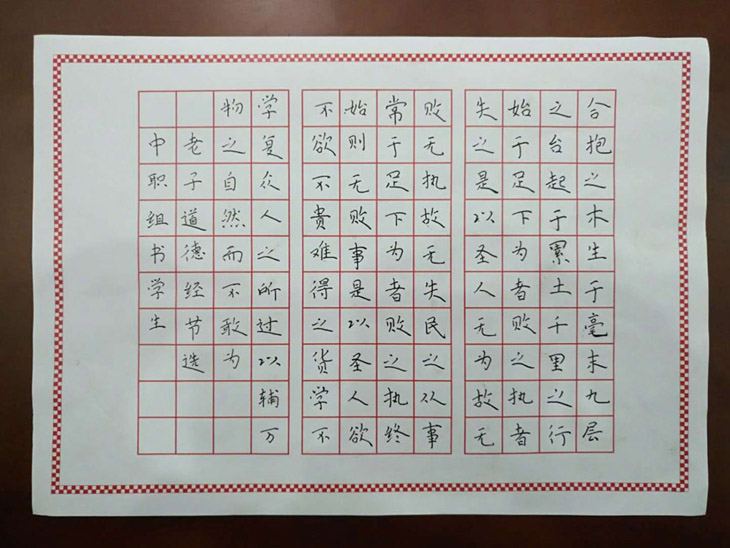 合抱之木生于毫末九层
之台起于累土千里之行
始于足下为者败之执者
失之是以圣人无为故无
败无执故无失民之从事
常于足下为者败之执终
始则无败事是以圣人欲
不欲不貴难得之货学不
学复众人之所过以辅万
物之自然而不敢为
老子道德经节选
中职组书学生